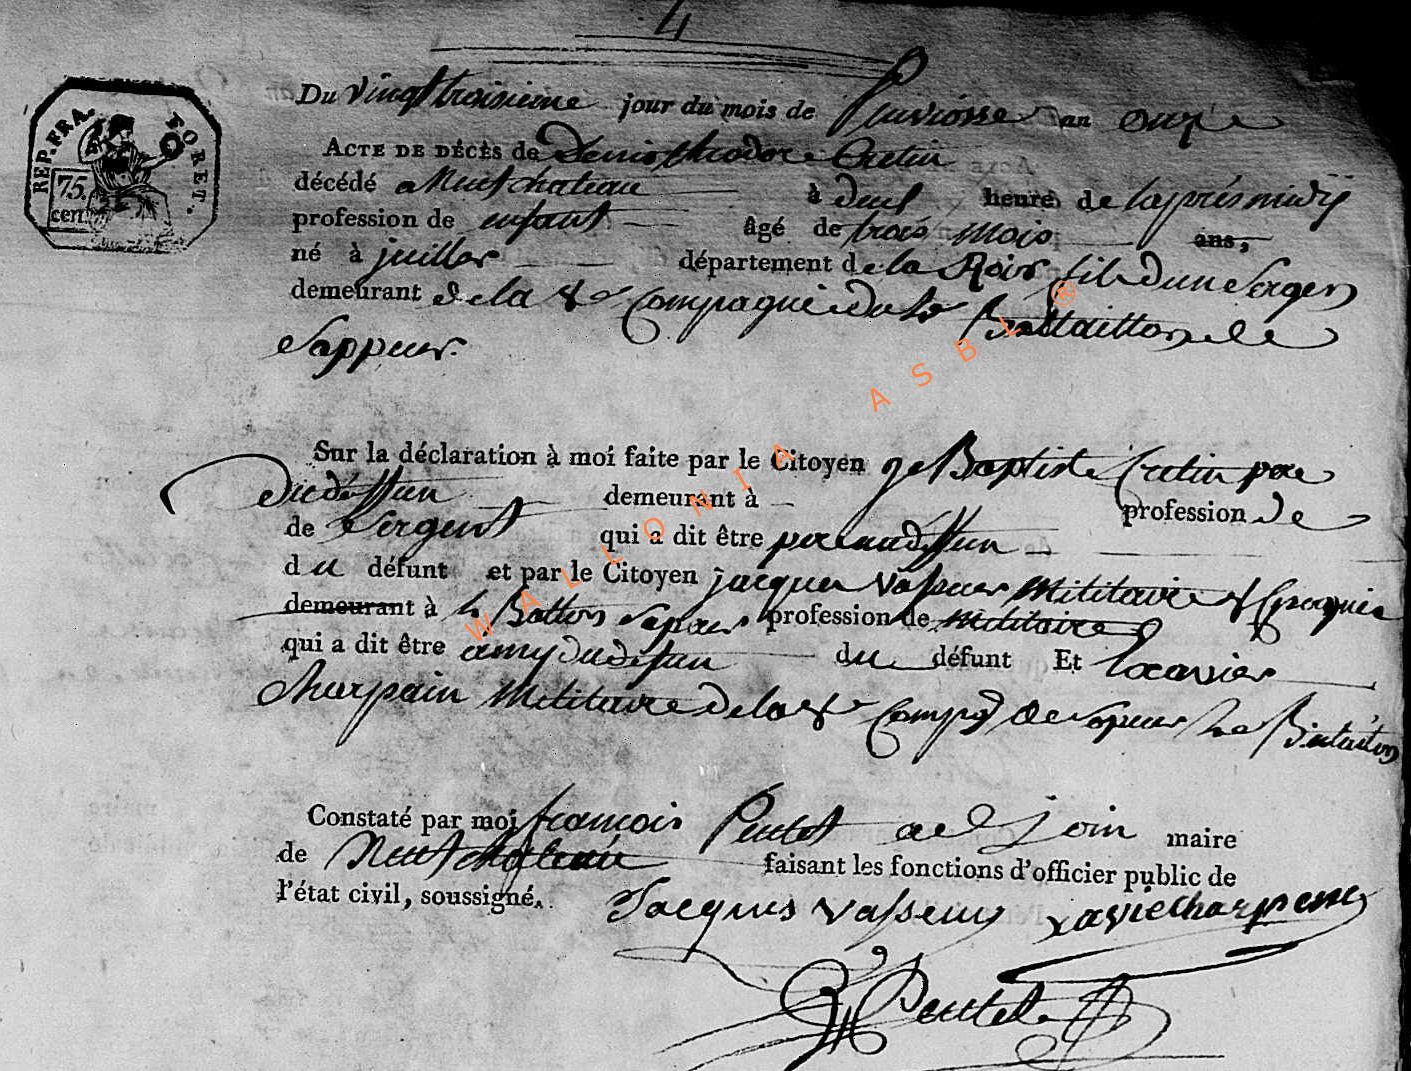 4
REP. FRA. TORET.
75. cent.
Du vingt troisieme jour du mois de Pluviosse an onze
ACTE DE DÉCÈS de Denis theodore Cretin
décédé a Neufchateau à deux heure de laprés midij
profession de enfant âgé de trois mois ans,
né à juillers département de la Roer fils dun Sergen
demeurant de la Compagnie du Battaillon de
Sappeur.
Sur la déclaration à moi faite par le Citoyen Baptiste Cretin pere
du deffun demeurant à profession de
de Sergent qui a dit être pere du deffun
du défunt et par le Citoyen jacques Vasseur Militaire
demeurant à Battion Sapeur profession de Militaire
qui a dit être amy du defun du défunt Et
Charpain Militaire de la Compg de Sapeur Battaillon
Constaté par moi francois Pentet adjoin maire
de Neufchateau faisant les fonctions d'officier public de
l'état civil, soussigné.
Jacques Vasseur xavie Charpene
Pentet
WALLONIA ASBL ®